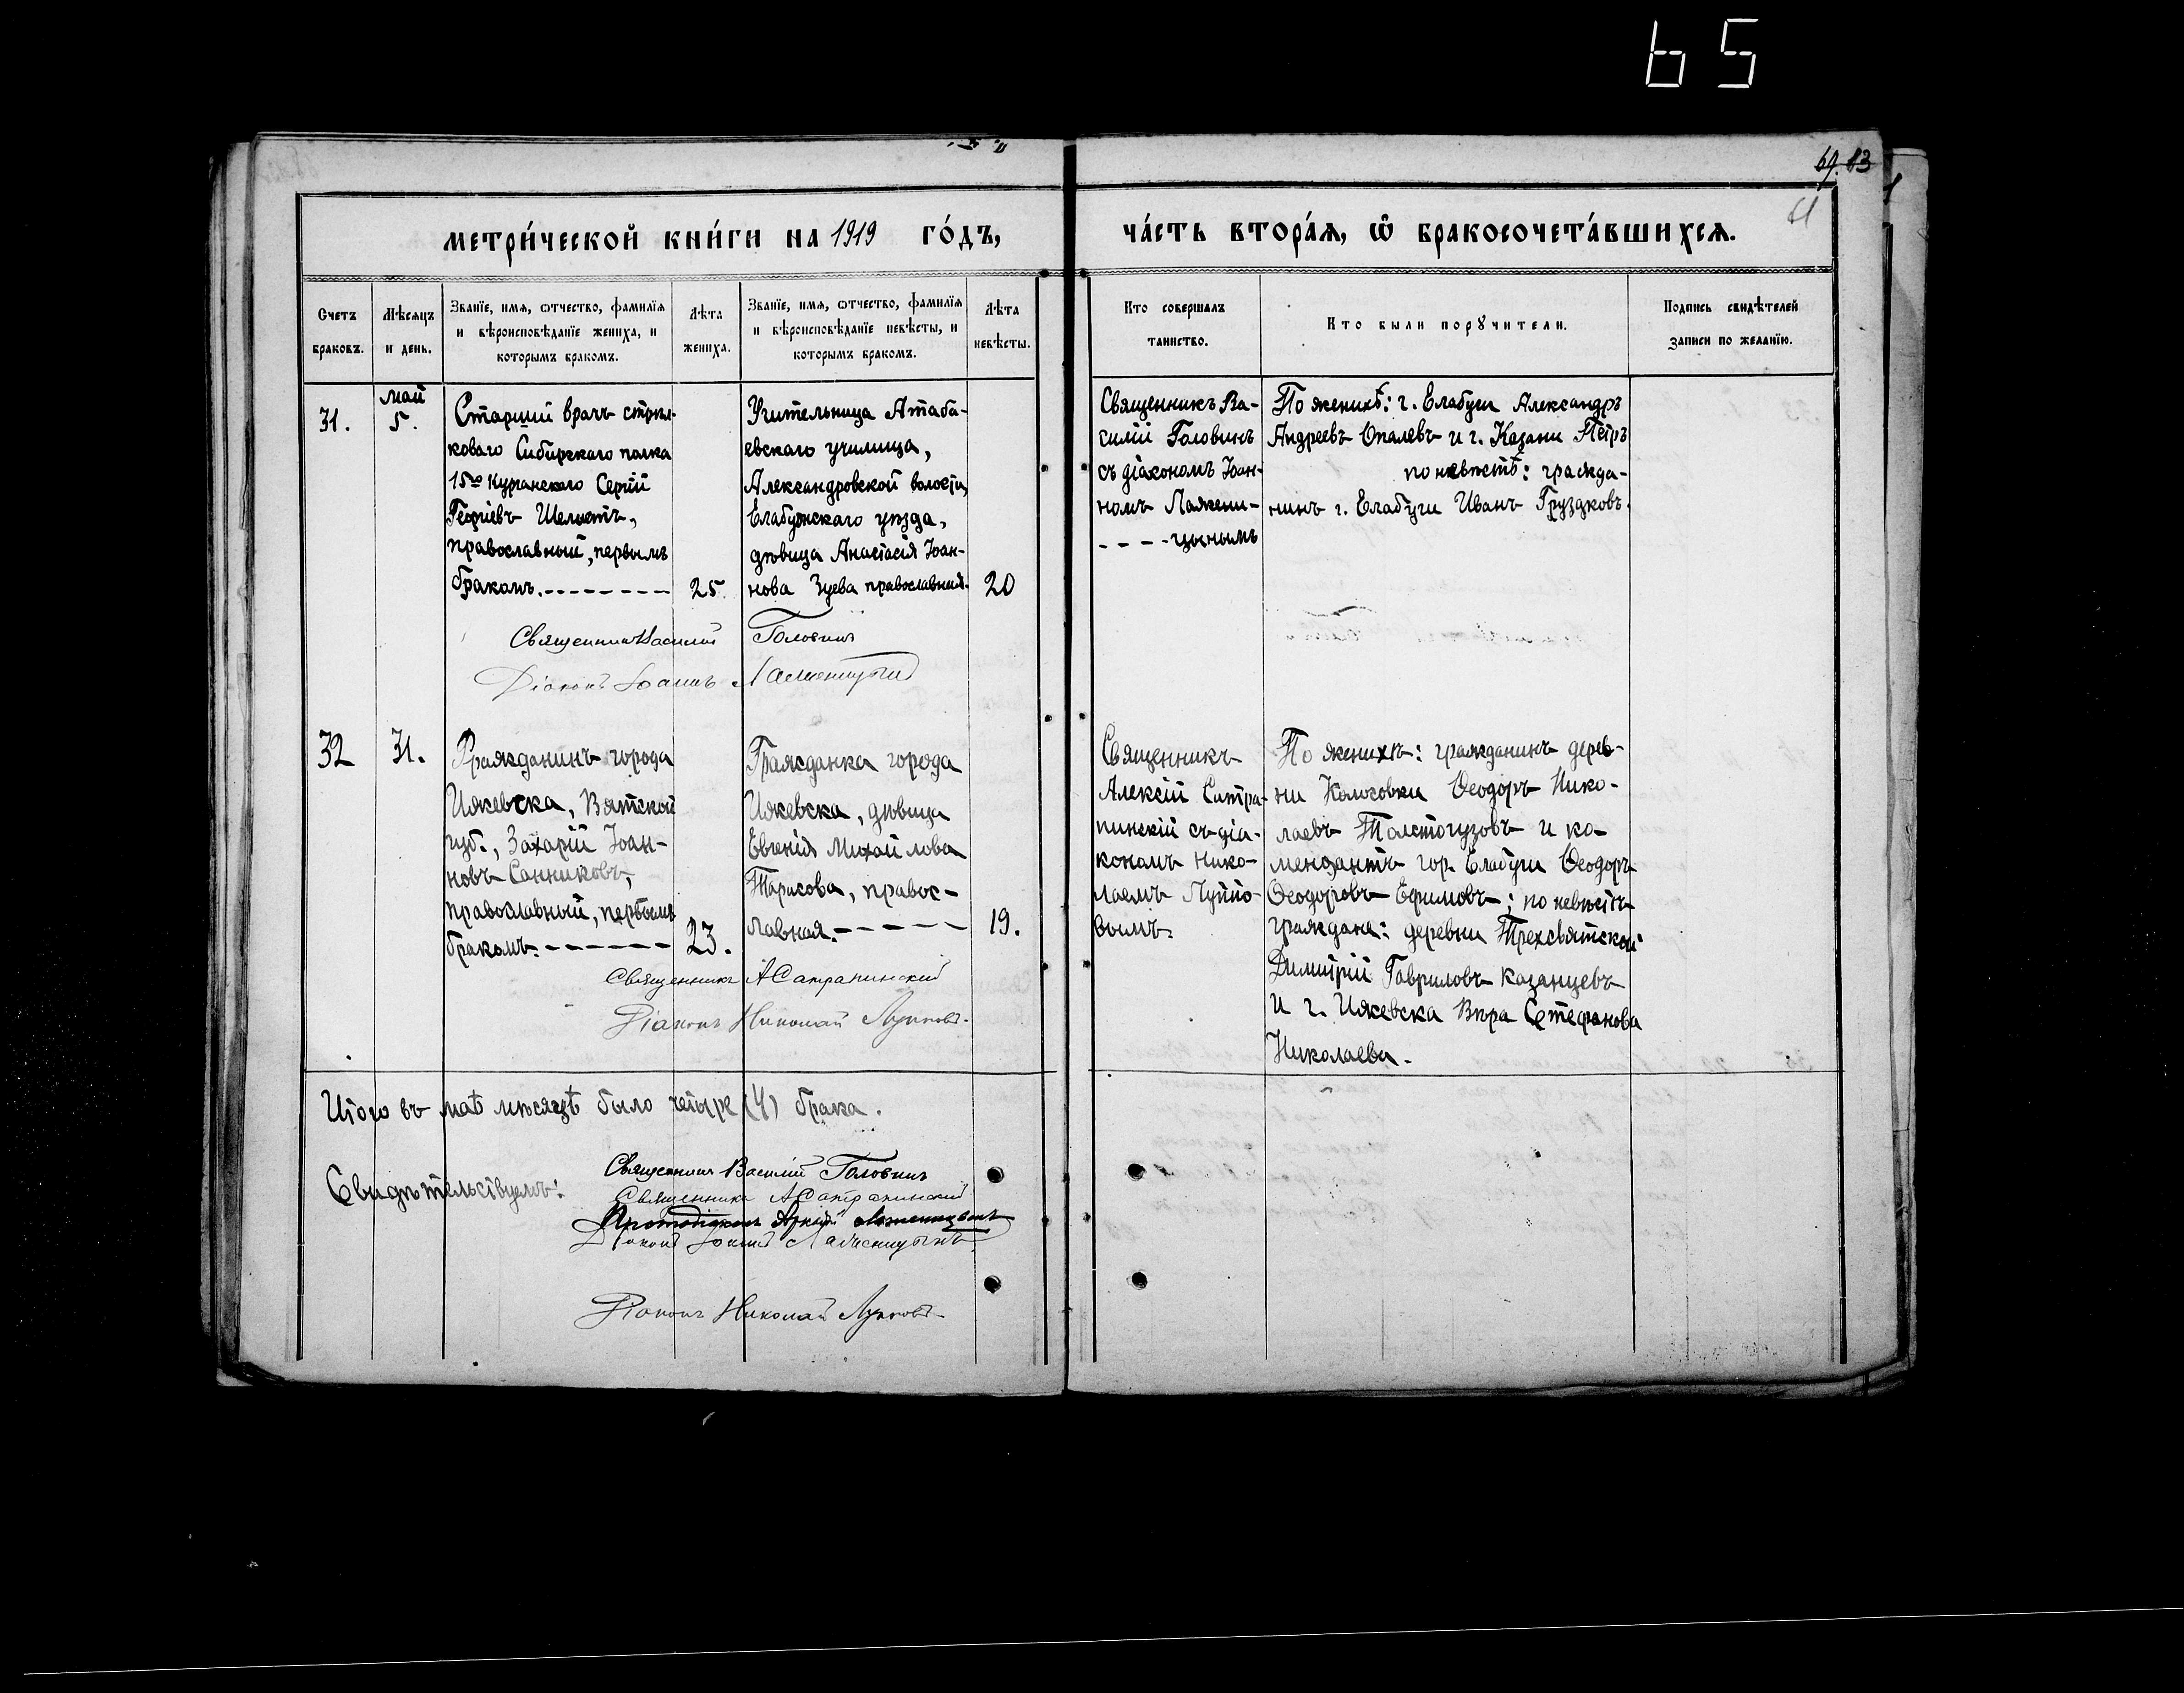 65
69. 63
61
метри́ческой кни́ги на 1919 го́дъ,
ча́сть втора́я, ѡ҆ бракосочета́вшихся.
Счетъ браковъ.
Мѣсяцъ и день.
Званїе, имя, ѡтчество, фамилїя
и вѣроисповѣданїе жениха, и
которымъ бракомъ.
Лѣта
жениха.
Званїе, имя, ѡтчество, фамилїя
и вѣроисповѣданїе невѣсты, и
которымъ бракомъ.
Лѣта
невѣсты.
Кто совершалъ
таинство.
Кто были порꙋчители.
Подпись свидѣтелей
записи по желанїю.
31.
май
5.
Старший врачъ стрѣл-
коваго Сибирскаго полка
15го Курганскаго Сергій
Георгіевъ Шелестъ,
православный, первымъ
бракомъ.
25.
Учительница Атаба-
евскаго училища,
Александровской волости,
Елабужскаго уѣзда,
дѣвица Анастасія Іоан-
нова Зуева православная.
20
Священникъ Ва-
силій Головинъ
съ діакономъ Іоан-
номъ Лаженицынымъ
По женихѣ: г. Елабуги Александръ
Андреевъ Опалевъ и г. Казани Петръ
по невѣстѣ: гражда-
нинъ г. Елабуги Иванъ Груздковъ.
Священникъ Василій Головинъ
Діаконъ Іоаннъ Лаженицынъ
32
31.
Гражданинъ города
Ижевска, Вятской
губ., Захарій Іоан-
новъ Санниковъ,
православный, первымъ
бракомъ.
23.
Гражданка города
Ижевска, дѣвица
Евгенія Михайлова
Тарасова, правос-
лавная.
19.
Священникъ
Алексій Сатра-
пинскій съ діа-
кономъ Нико-
лаемъ Луппо-
вымъ.
По женихѣ: гражданинъ дерев-
ни Колосовки Ѳеодоръ Нико-
лаевъ Толстогузовъ и ко-
мендантъ гор. Елабуги Ѳеодоръ
Ѳеодоровъ Ефимовъ; по невѣстѣ
граждане: деревни Трехсвятской
Димитрій Гавриловъ Казанцевъ
и г. Ижевска Вѣра Стефанова
Николаева.
Священникъ А Сатрапинский
Діаконъ Николай Лупповъ.
Итого въ маѣ мѣсяцѣ было четыре (4) брака.
Свидѣтельствуемъ:
Священникъ Василій Головинъ
Священникъ А Сатрапинский
Діаконъ Іоаннъ Лаженицынъ
Діаконъ Николай Лупповъ